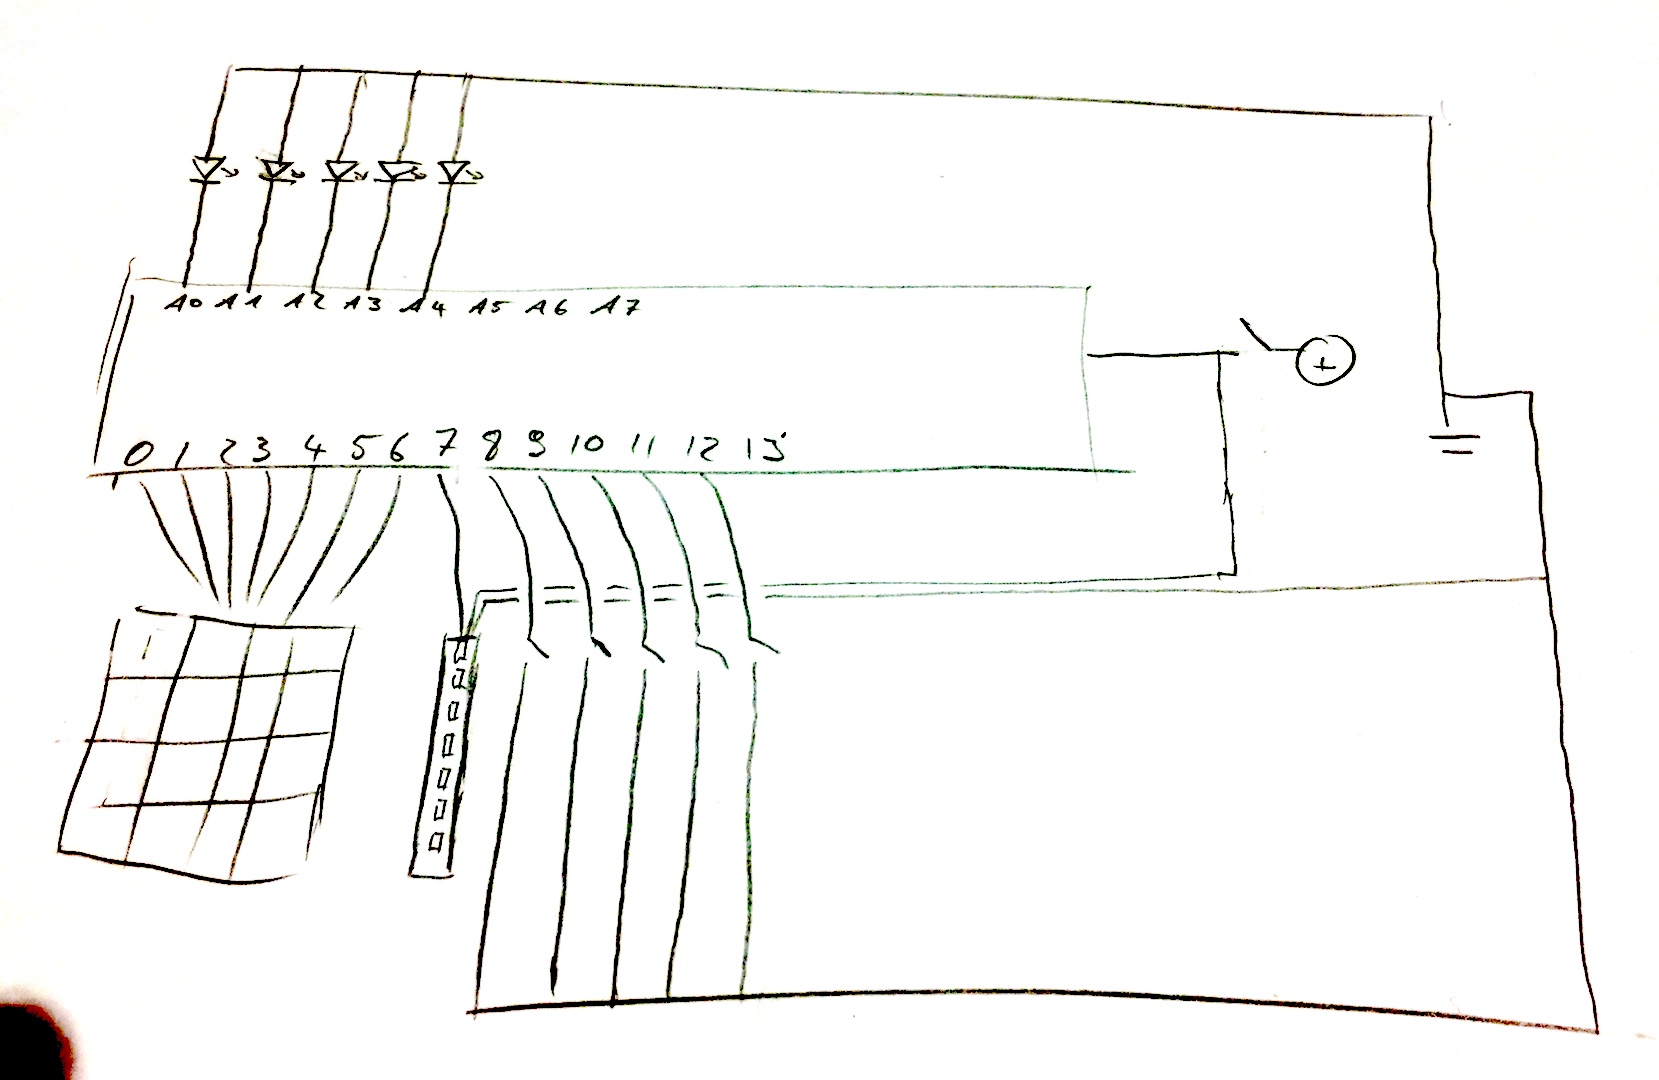 A0 A1 A2 A3 A4 A5 A6 A7
+
0 1 2 3 4 5 6 7 8 9 10 11 12 13